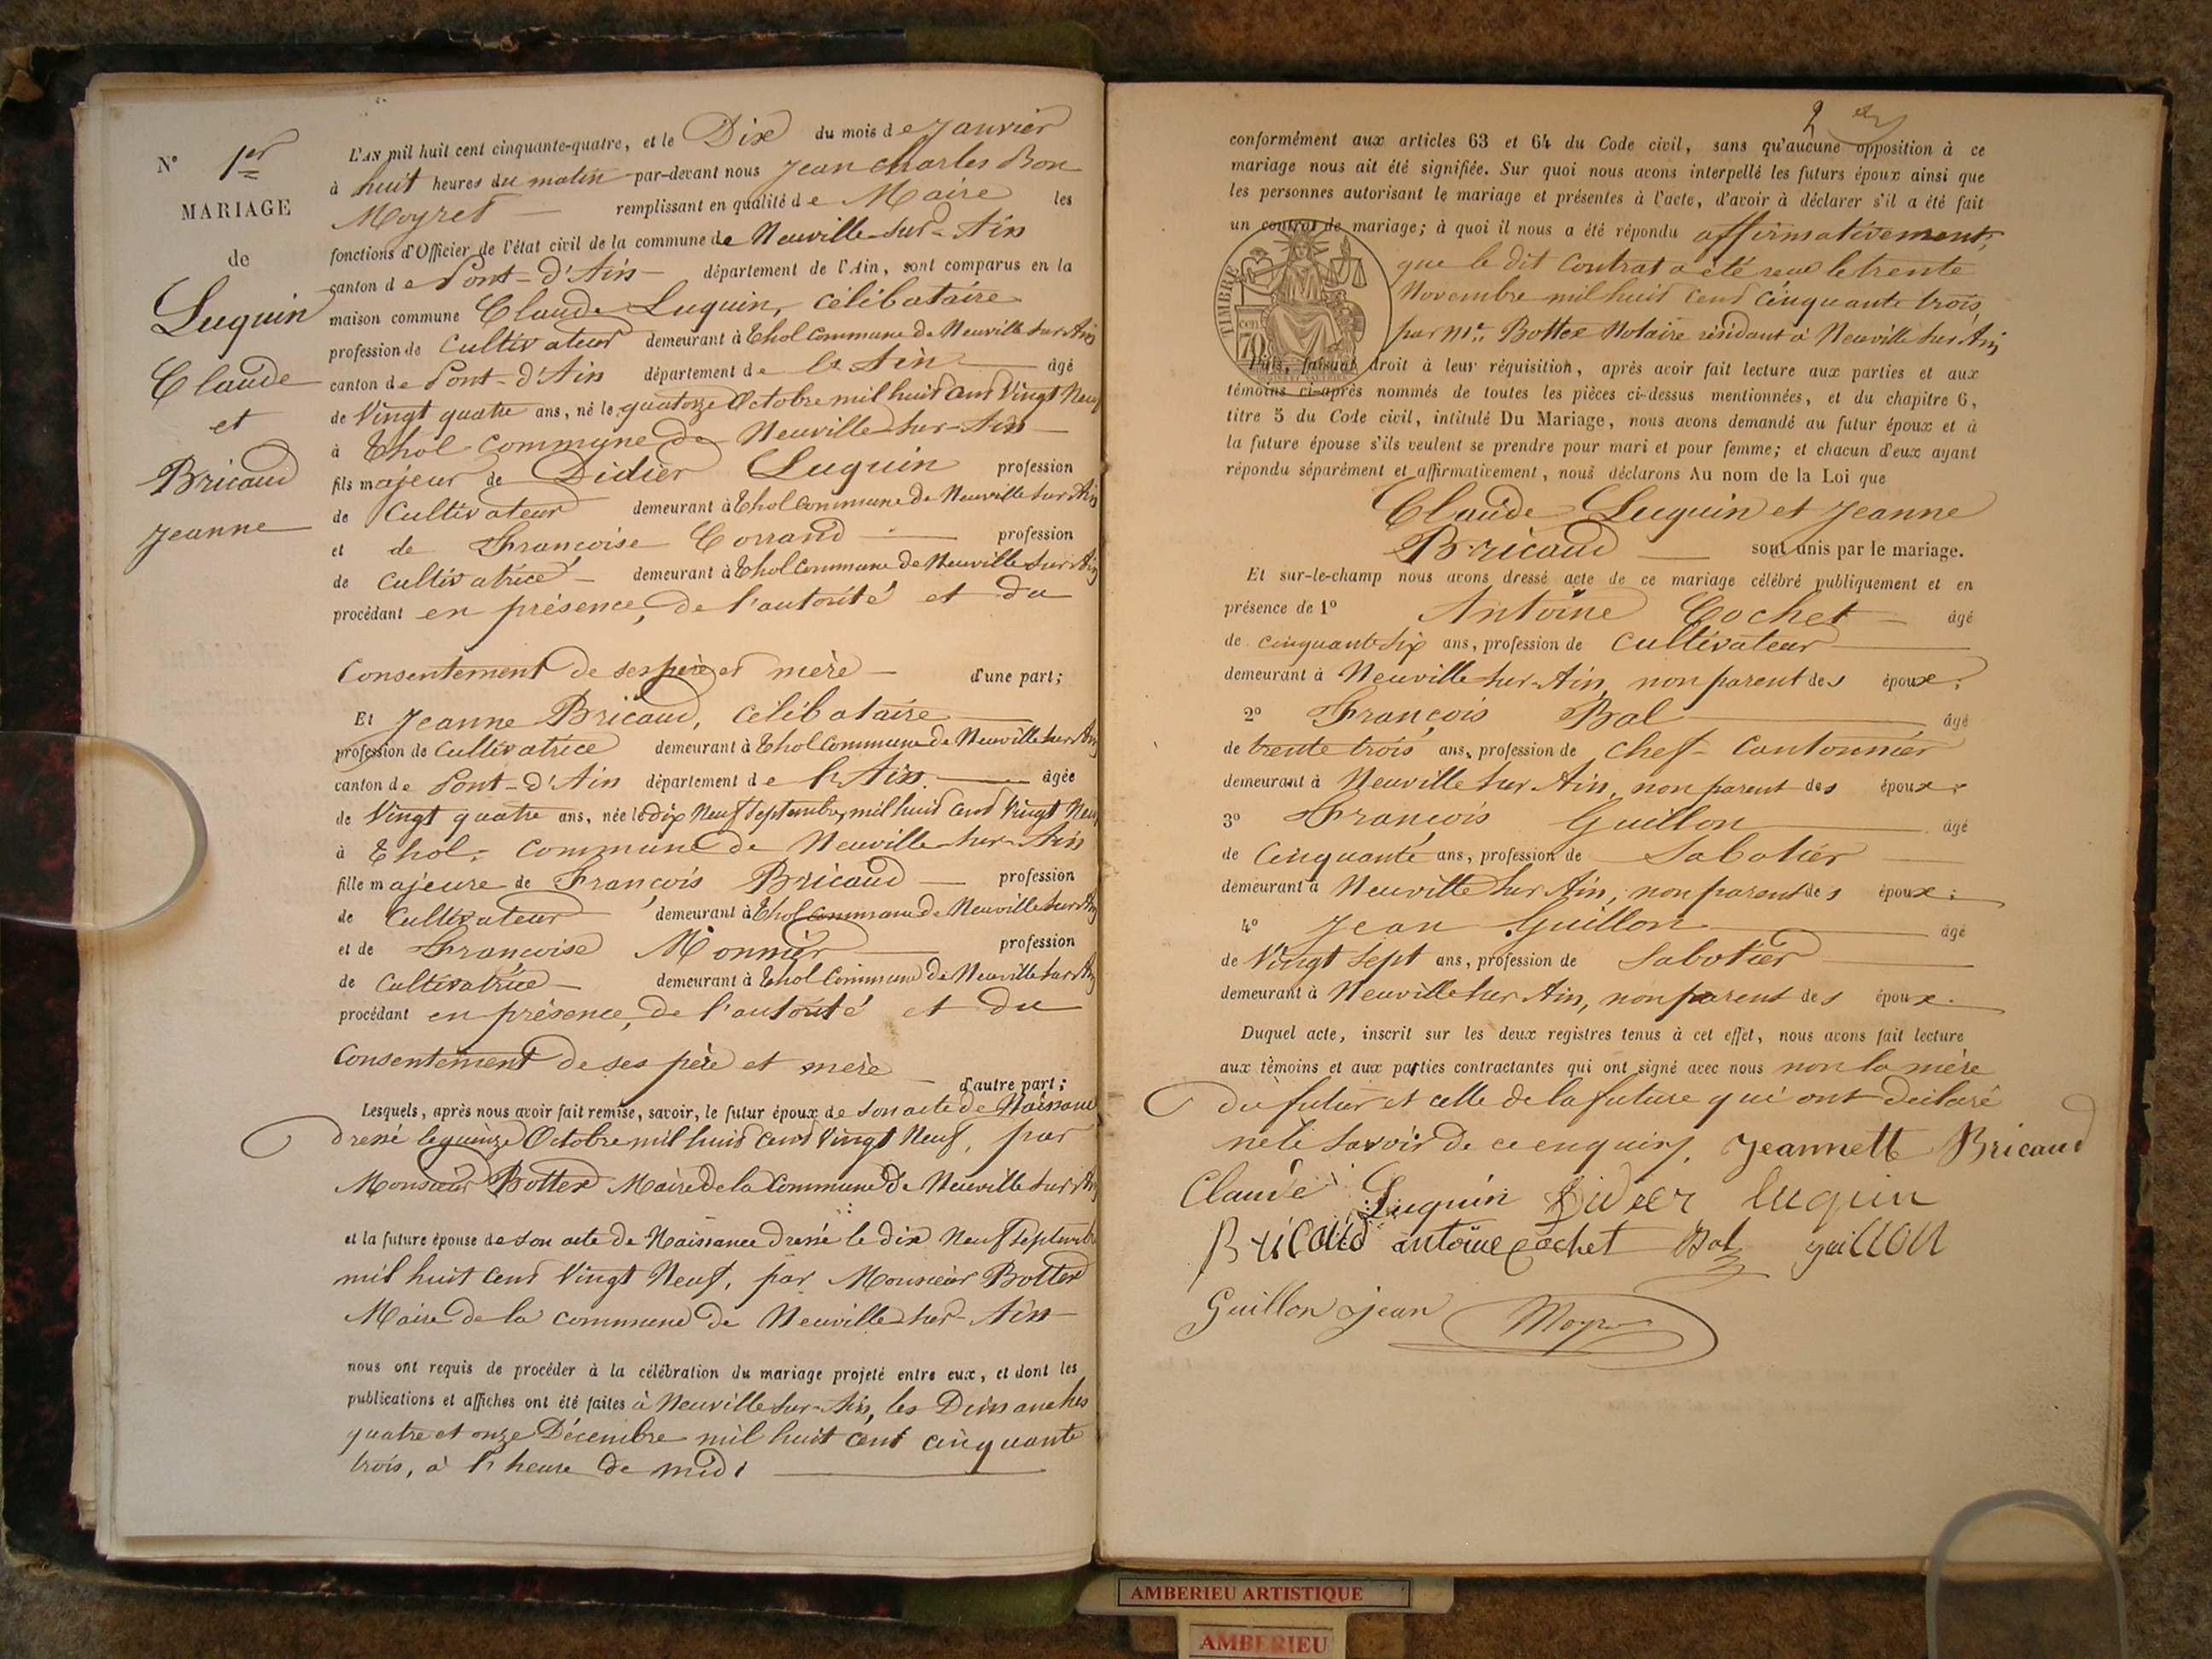 N° 1er
MARIAGE
de
Luquin
Claude
et
Bricaud
Jeanne
L'AN mil huit cent cinquante-quatre, et le Dix du mois de Janvier
à huit heures du matin par-devant nous Jean Charles Bon
Moyret remplissant en qualité de Maire les
fonctions d'Officier de l'état civil de la commune de Neuville sur-Ain
canton de Pont-d'Ain département de l'Ain, sont comparus en la
maison commune Claude Luquin, célibataire
profession de Cultivateur demeurant à Thol commune de Neuville sur Ain
canton de Pont-d'Ain département de l'Ain âgé
de Vingt quatre ans, né le quatorze Octobre mil huit cent Vingt Neuf
à Thol commune de Neuville sur-Ain
fils majeur de Didier Luquin profession
de Cultivateur demeurant à Thol commune de Neuville sur Ain
et de Françoise Corrand profession
de cultivatrice demeurant à Thol commune de Neuville sur Ain
procédant en présence, de l'autorité et du
Consentement de ses père et mère d'une part;
Et Jeanne Bricaud, célibataire
profession de Cultivatrice demeurant à Thol commune de Neuville sur Ain
canton de Pont-d'Ain département de l'Ain âgée
de Vingt quatre ans, née le dix Neuf Septembre, mil huit cent Vingt Neuf
à Thol, commune de Neuville sur-Ain
fille majeure de François Bricaud profession
de Cultivateur demeurant à Thol commune de Neuville sur Ain
et de Françoise Monnier profession
de Cultivatrice demeurant à Thol commune de Neuville sur Ain
procédant en présence, de l'autorité et du
Consentement de ses père et mère
d'autre part;
Lesquels, après nous avoir fait remise, savoir, le futur époux de son acte de Naissance
dressé le quinze Octobre mil huit cent Vingt Neuf, par
Monsieur Bottex Maire de la Commune de Neuville sur Ain
et la future épouse de son acte de Naissance dressé le dix Neuf Septembre
mil huit cent Vingt Neuf, par Monsieur Bottex
Maire de la commune de Neuville sur-Ain
nous ont requis de procéder à la célébration du mariage projeté entre eux, et dont les
publications et affiches ont été faites à Neuville sur-Ain, les Dimanches
quatre et onze Décembre mil huit cent cinquante
trois, à l'heure de midi
2
conformément aux articles 63 et 64 du Code civil, sans qu'aucune opposition à ce
mariage nous ait été signifiée. Sur quoi nous avons interpellé les futurs époux ainsi que
les personnes autorisant le mariage et présentes à l'acte, d'avoir à déclarer s'il a été fait
un contrat de mariage; à quoi il nous a été répondu affirmativement,
que le dit Contrat a été reçu le trente
Novembre mil huit cent cinquante trois,
par Me Bottex Notaire résidant à Neuville sur Ain
TIMBRE
cen
70
Puis, faisant droit à leur réquisition, après avoir fait lecture aux parties et aux
témoins ci-après nommés de toutes les pièces ci-dessus mentionnées, et du chapitre 6,
titre 5 du Code civil, intitulé Du Mariage, nous avons demandé au futur époux et à
la future épouse s'ils veulent se prendre pour mari et pour femme; et chacun d'eux ayant
répondu séparément et affirmativement, nous déclarons Au nom de la Loi que
Claude Luquin et Jeanne
Bricaud sont unis par le mariage.
Et sur-le-champ nous avons dressé acte de ce mariage célébré publiquement et en
présence de 1° Antoine Cochet âgé
de cinquante six ans, profession de cultivateur
demeurant à Neuville sur-Ain, non parent des époux;
2° François Bal âgé
de trente trois ans, profession de chef-Cantonnier
demeurant à Neuville sur Ain, non parent des époux;
3° François Guillon âgé
de Cinquante ans, profession de Sabotier
demeurant à Neuville sur Ain, non parent des époux;
4° Jean Guillon âgé
de Vingt sept ans, profession de Sabotier
demeurant à Neuville sur Ain, non parent des époux.
Duquel acte, inscrit sur les deux registres tenus à cet effet, nous avons fait lecture
aux témoins et aux parties contractantes qui ont signé avec nous non la mère
du futur et celle de la future qui ont déclaré
ne le savoir de ce enquis. Jeannett Bricaud
Claude Luquin Didier luquin
Bricaud antoine cochet Bal guillon
Guillon jean Moyret
AMBERIEU ARTISTIQUE
AMBERIEU